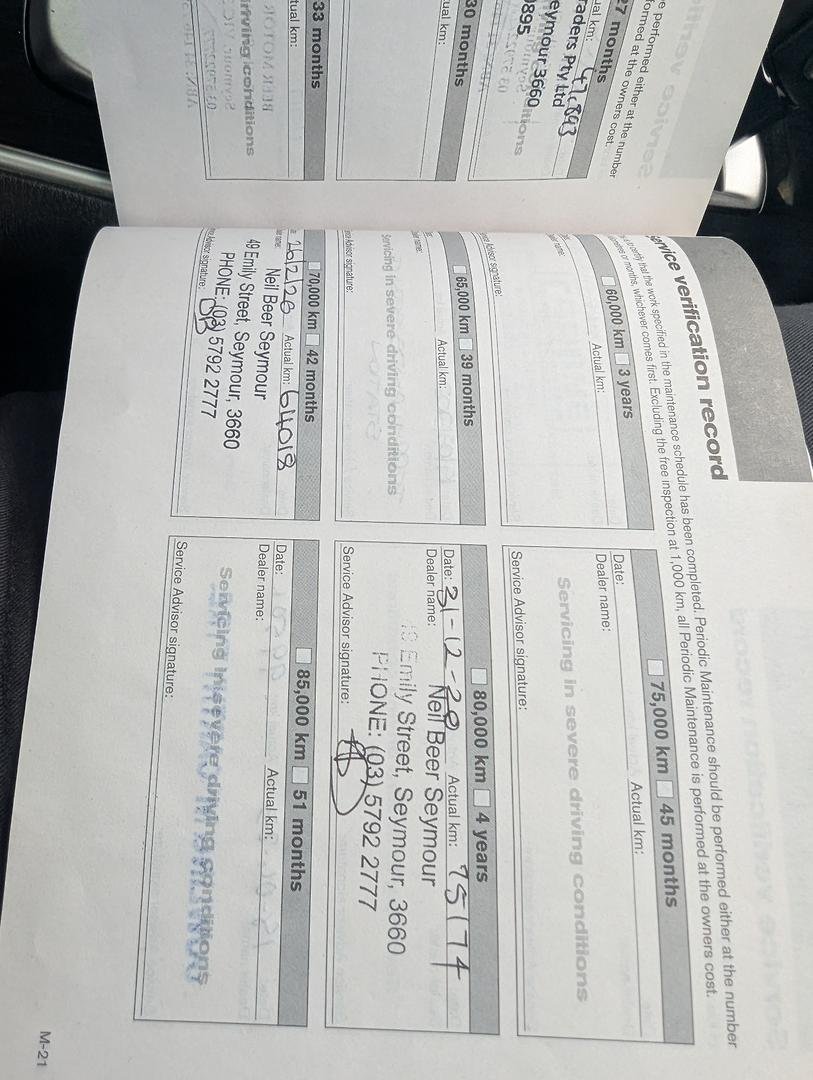 27 months
47,893
raders Pty Ltd
eymour 3660
9895
30 months
33 months
Service verification record
certify that the work specified in the maintenance schedule has been completed. Periodic Maintenance should be performed either at the number
or months, whichever comes first. Excluding the free inspection at 1,000 km, all Periodic Maintenance is performed at the owners cost.
60,000 km 3 years
Actual km:
Service Advisor signature:
65,000 km 39 months
Actual km:
Servicing in severe driving conditions
Service Advisor signature:
70,000 km 42 months
26/2/20 Actual km: 64018
Neil Beer Seymour
49 Emily Street, Seymour, 3660
PHONE: (03) 5792 2777
Advisor signature:
75,000 km 45 months
Date: Actual km:
Dealer name:
Servicing in severe driving conditions
Service Advisor signature:
80,000 km 4 years
Date: 31-12-20 Actual km: 75174
Dealer name: Neil Beer Seymour
Emily Street, Seymour, 3660
PHONE: (03) 5792 2777
Service Advisor signature:
85,000 km 51 months
Date: Actual km:
Dealer name:
Servicing in severe driving conditions
Service Advisor signature:
M-21